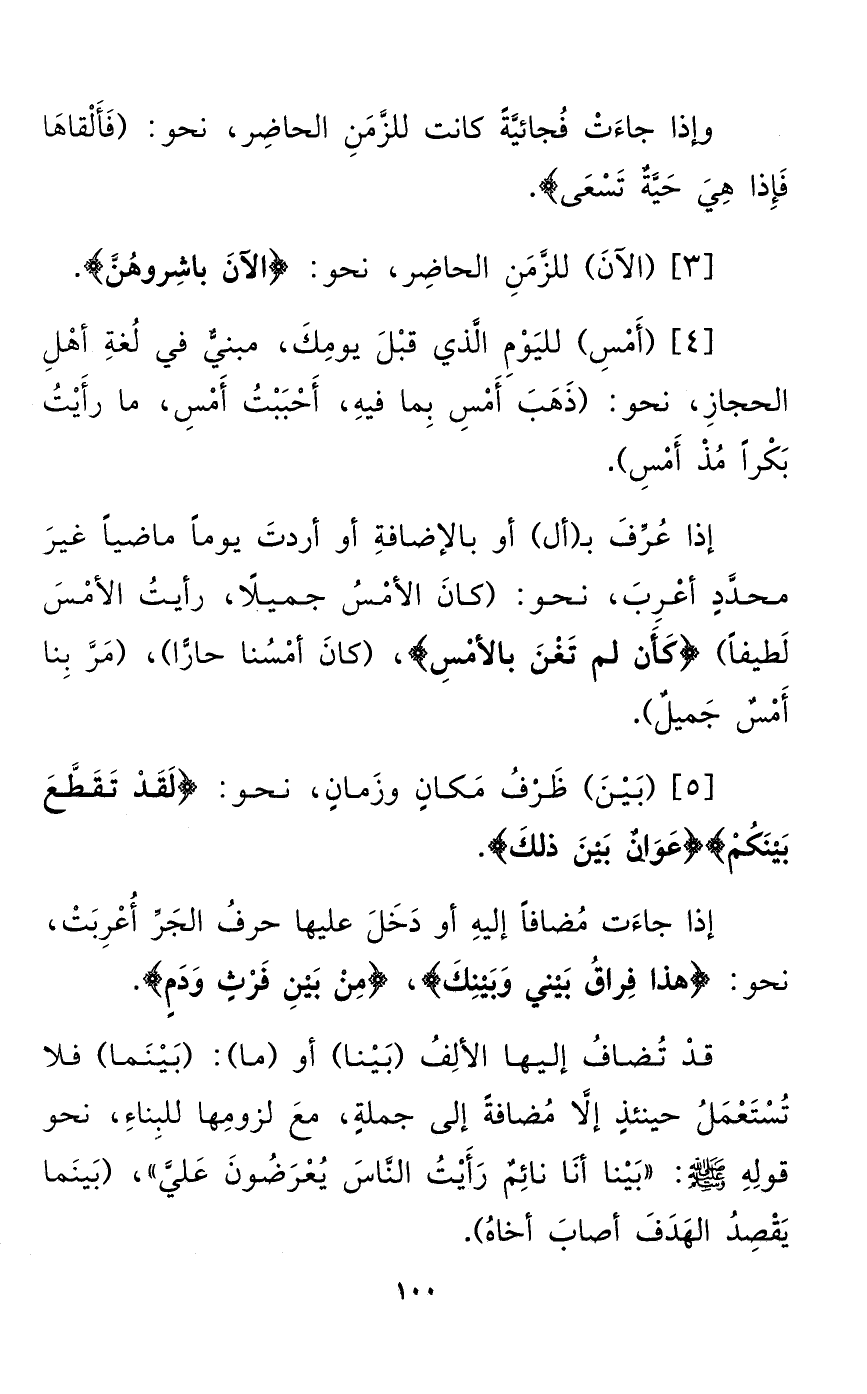 وإذا جاءَتْ فُجائيَّةً كانت للزَّمَنِ الحاضِر، نحو: (فَأَلْقاهَا
فَإِذا هِيَ حَيَّةٌ تَسْعَى﴾.
[٣] (الآنَ) للزَّمَنِ الحاضِر، نحو: ﴿الآنَ باشِروهُنَّ﴾.
[٤] (أَمْسِ) لليَوْمِ الَّذي قبْلَ يومِكَ، مبنيٌّ في لُغةِ أهْلِ
الحجازِ، نحو: (ذَهَبَ أَمْسِ بِما فيهِ، أَحْبَبْتُ أَمْسِ، ما رأَيْتُ
بَكْراً مُذْ أَمْسِ).
إذا عُرِّفَ بـ(أل) أو بالإضافةِ أو أردتَ يوماً ماضياً غيرَ
محدَّدٍ أعْرِبَ، نحو: (كانَ الأمْسُ جميلًا، رأيتُ الأمْسَ
لَطيفاً) ﴿كَأَن لم تَغْنَ بالأمْسِ﴾، (كانَ أمْسُنا حارًّا)، (مَرَّ بِنا
أَمْسٌ جَميلٌ).
[٥] (بَيْنَ) ظَرْفُ مَكانٍ وزَمانٍ، نحو: ﴿لَقَدْ تَقَطَّعَ
بَيْنَكُمْ﴾﴿عَوَانٌ بَيْنَ ذلكَ﴾.
إذا جاءَت مُضافاً إليهِ أو دَخَلَ عليها حرفُ الجَرِّ أُعْرِبَتْ،
نحو: ﴿هذا فِراقُ بَيْني وَبَيْنِكَ﴾، ﴿مِنْ بَيْنِ فَرْثٍ وَدَمٍ﴾.
قدْ تُضافُ إليها الألِفُ (بَيْنا) أو (ما): (بَيْنَما) فلا
تُسْتَعْمَلُ حينئذٍ إلَّا مُضافةً إلى جملةٍ، معَ لزومِها للبِناءِ، نحو
قولِهِ ﷺ: «بَيْنا أنَا نائِمٌ رَأَيْتُ النَّاسَ يُعْرَضُونَ عَليَّ»، (بَينَما
يَقْصِدُ الهَدَفَ أصابَ أخاهُ).
١٠٠